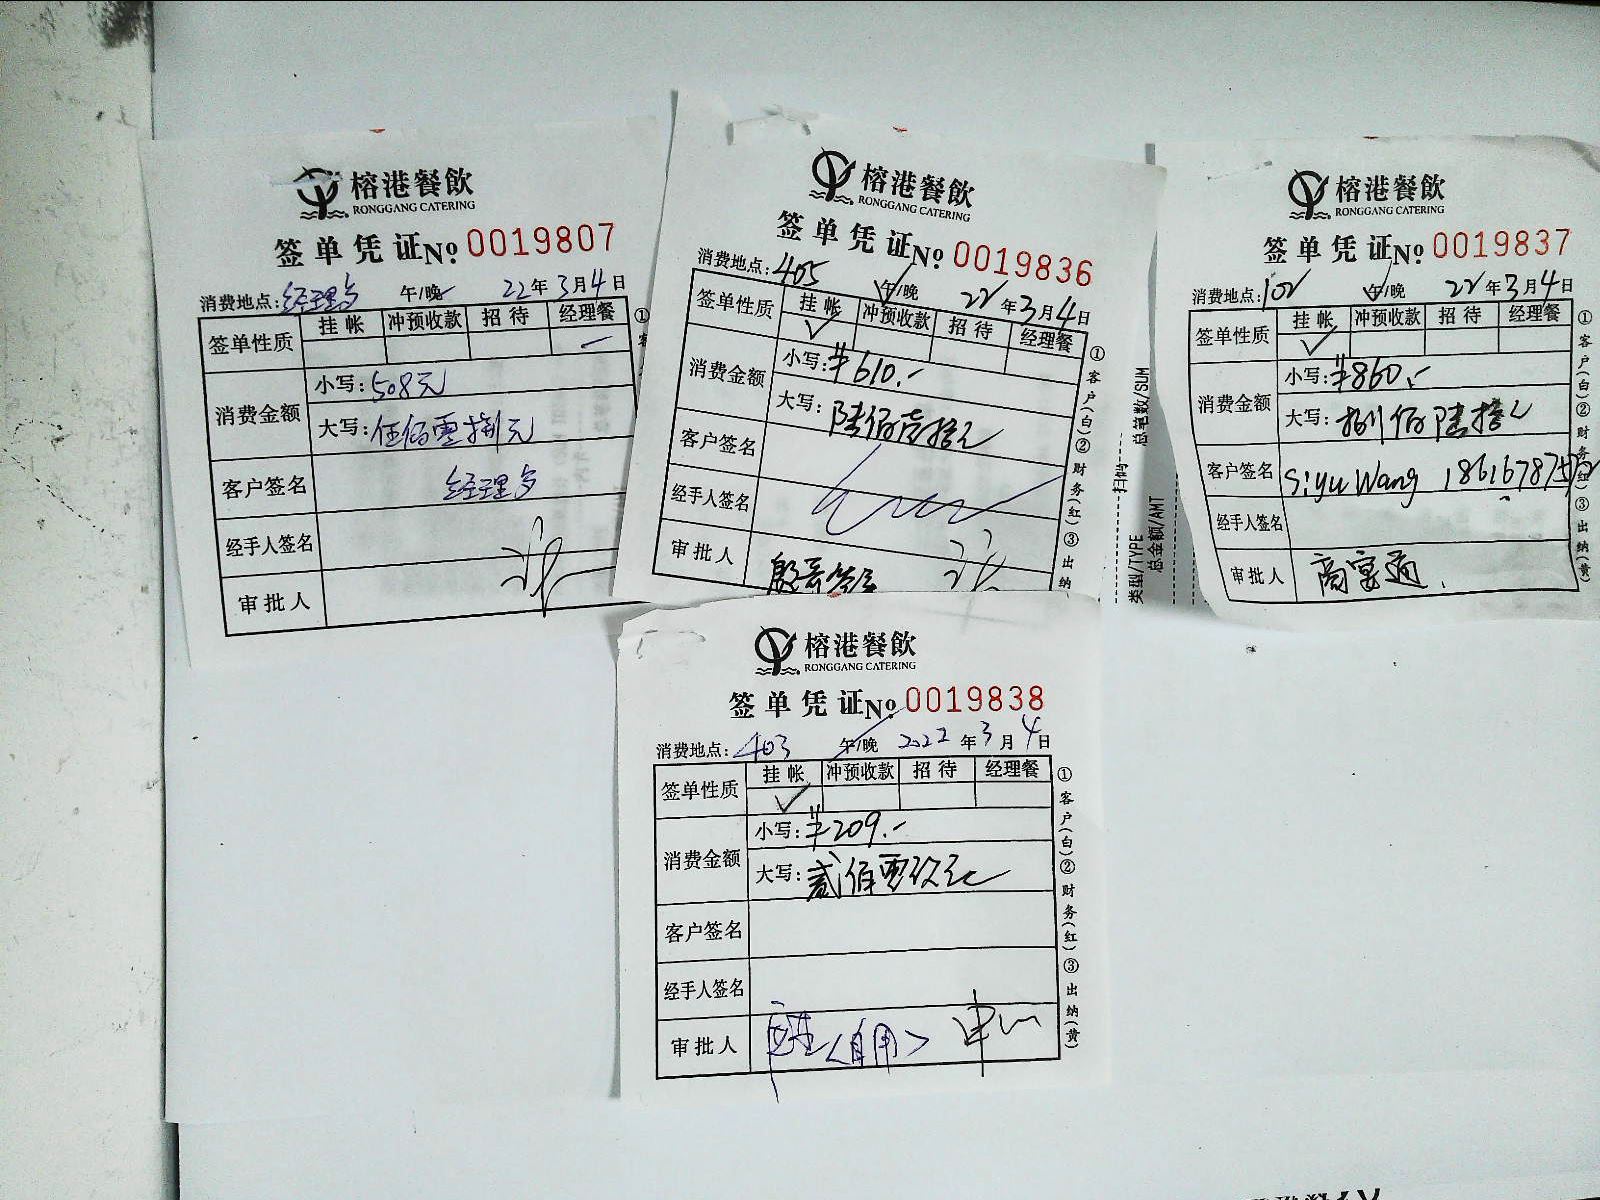 榕港餐飲
RONGGANG CATERING
签单凭证No. 0019807
消费地点: 午/晚 22年3月4日
签单性质 挂帐 冲预收款 招待 经理餐
消费金额 小写:508元
大写:伍佰零捌元
客户签名
经手人签名
审批人
①
榕港餐飲
RONGGANG CATERING
签单凭证No. 0019836
消费地点:405 午/晚 22年3月4日
签单性质 挂帐 冲预收款 招待 经理餐
消费金额 小写:¥610.-
大写:陆佰壹拾元
客户签名
经手人签名
审批人
①客户(白)②财务(红)③出纳
总笔数/SUM
扫码
类型/TYPE
总金额/AMT
榕港餐飲
RONGGANG CATERING
签单凭证No. 0019837
消费地点:102 午/晚 22年3月4日
签单性质 挂帐 冲预收款 招待 经理餐
消费金额 小写:¥860.-
大写:捌佰陆拾元
客户签名 Siyu Wang
经手人签名
审批人 商宴通
①客户(白)②财务(红)③出纳(黄)
榕港餐飲
RONGGANG CATERING
签单凭证No. 0019838
消费地点:403 午/晚 2022年3月4日
签单性质 挂帐 冲预收款 招待 经理餐
消费金额 小写:¥209.-
大写:贰佰零玖元
客户签名
经手人签名
审批人 (自用)
①客户(白)②财务(红)③出纳(黄)